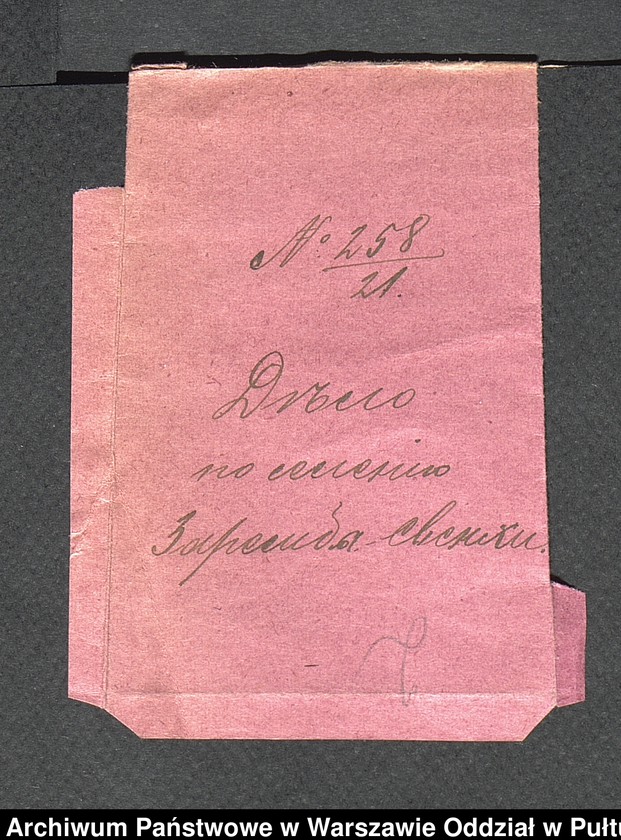 № 258
21.
Дѣло
по селенію
Заремба-Свенхи.
Archiwum Państwowe w Warszawie Oddział w Pułtu